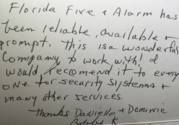 Florida Fire & Alarm has
been reliable, available &
prompt. This is a wonderful
Company to work with! I
would recomend it to every
one for security Systems &
many other services
Thanks Danielle & Dominic